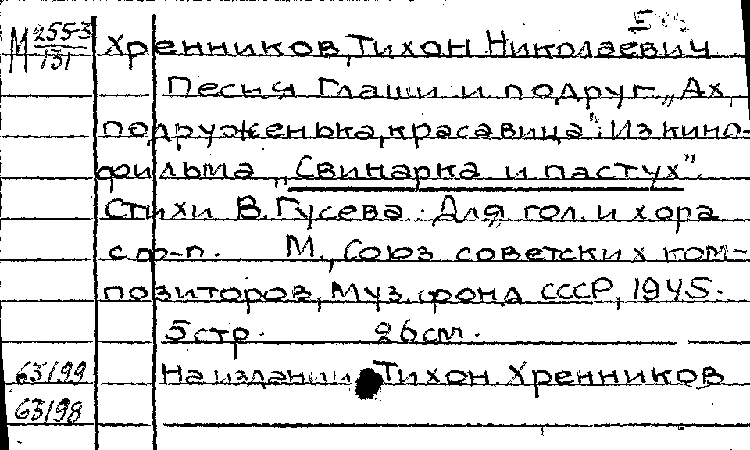 М 255-3/131
Хренников, Тихон Николаевич
Песня Глаши и подруг „Ах,
подруженька, красавица". Из кино-
фильма „Свинарка и пастух".
Стихи В. Гусева. Для гол. и хора
с ф-п. М., Союз советских ком-
позиторов, Муз. фонд СССР, 1945.
5 стр. 26 см.
63199 На издании: Тихон Хренников
63198